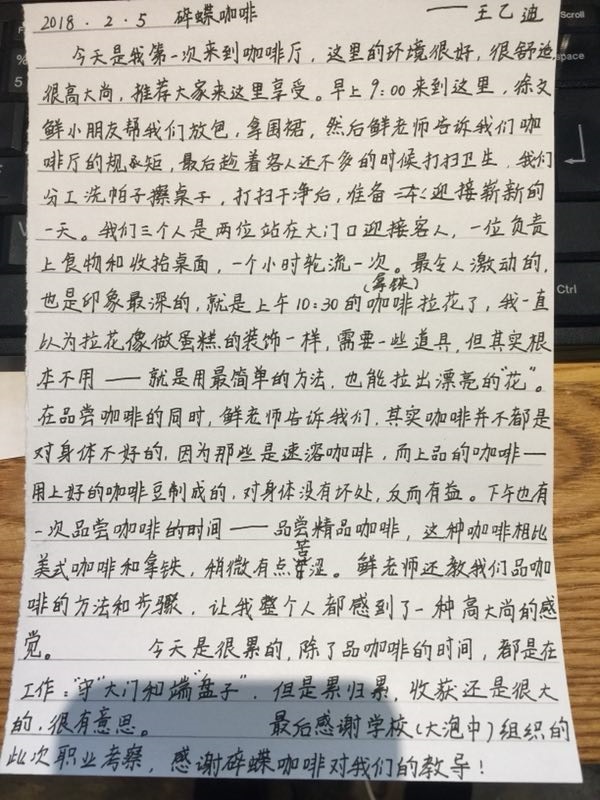 2018.2.5 碎蝶咖啡 ——王乙迪
今天是我第一次来到咖啡厅，这里的环境很好，很舒适
很高大尚，推荐大家来这里享受。早上9:00来到这里，徐文
鲜小朋友帮我们放包，拿围裙，然后鲜老师告诉我们咖
啡厅的规矩，最后趁着客人还不多的时候打扫卫生，我们
分工洗帕子擦桌子，打扫干净后，准备迎接崭新的
一天。我们三个人是两位站在大门口迎接客人，一位负责
上食物和收拾桌面，一个小时轮流一次。最令人激动的，
也是印象最深的，就是上午10:30的咖啡(拿铁)拉花了，我一直
以为拉花像做蛋糕的装饰一样，需要一些道具，但其实根
本不用——就是用最简单的方法，也能拉出漂亮的"花"。
在品尝咖啡的同时，鲜老师告诉我们，其实咖啡并不都是
对身体不好的，因为那些是速溶咖啡，而上品的咖啡—
用上好的咖啡豆制成的，对身体没有坏处，反而有益。下午也有
一次品尝咖啡的时间——品尝精品咖啡，这种咖啡相比
美式咖啡和拿铁，稍微有点苦涩。鲜老师还教我们品咖
啡的方法和步骤，让我整个人都感到了一种高大尚的感
觉。 今天是很累的，除了品咖啡的时间，都是在
工作："守"大门和端"盘子"，但是累归累，收获还是很大
的，很有意思。 最后感谢学校(大泡中)组织的
此次职业考察，感谢碎蝶咖啡对我们的教导！
Scroll
5
W
Ctrl